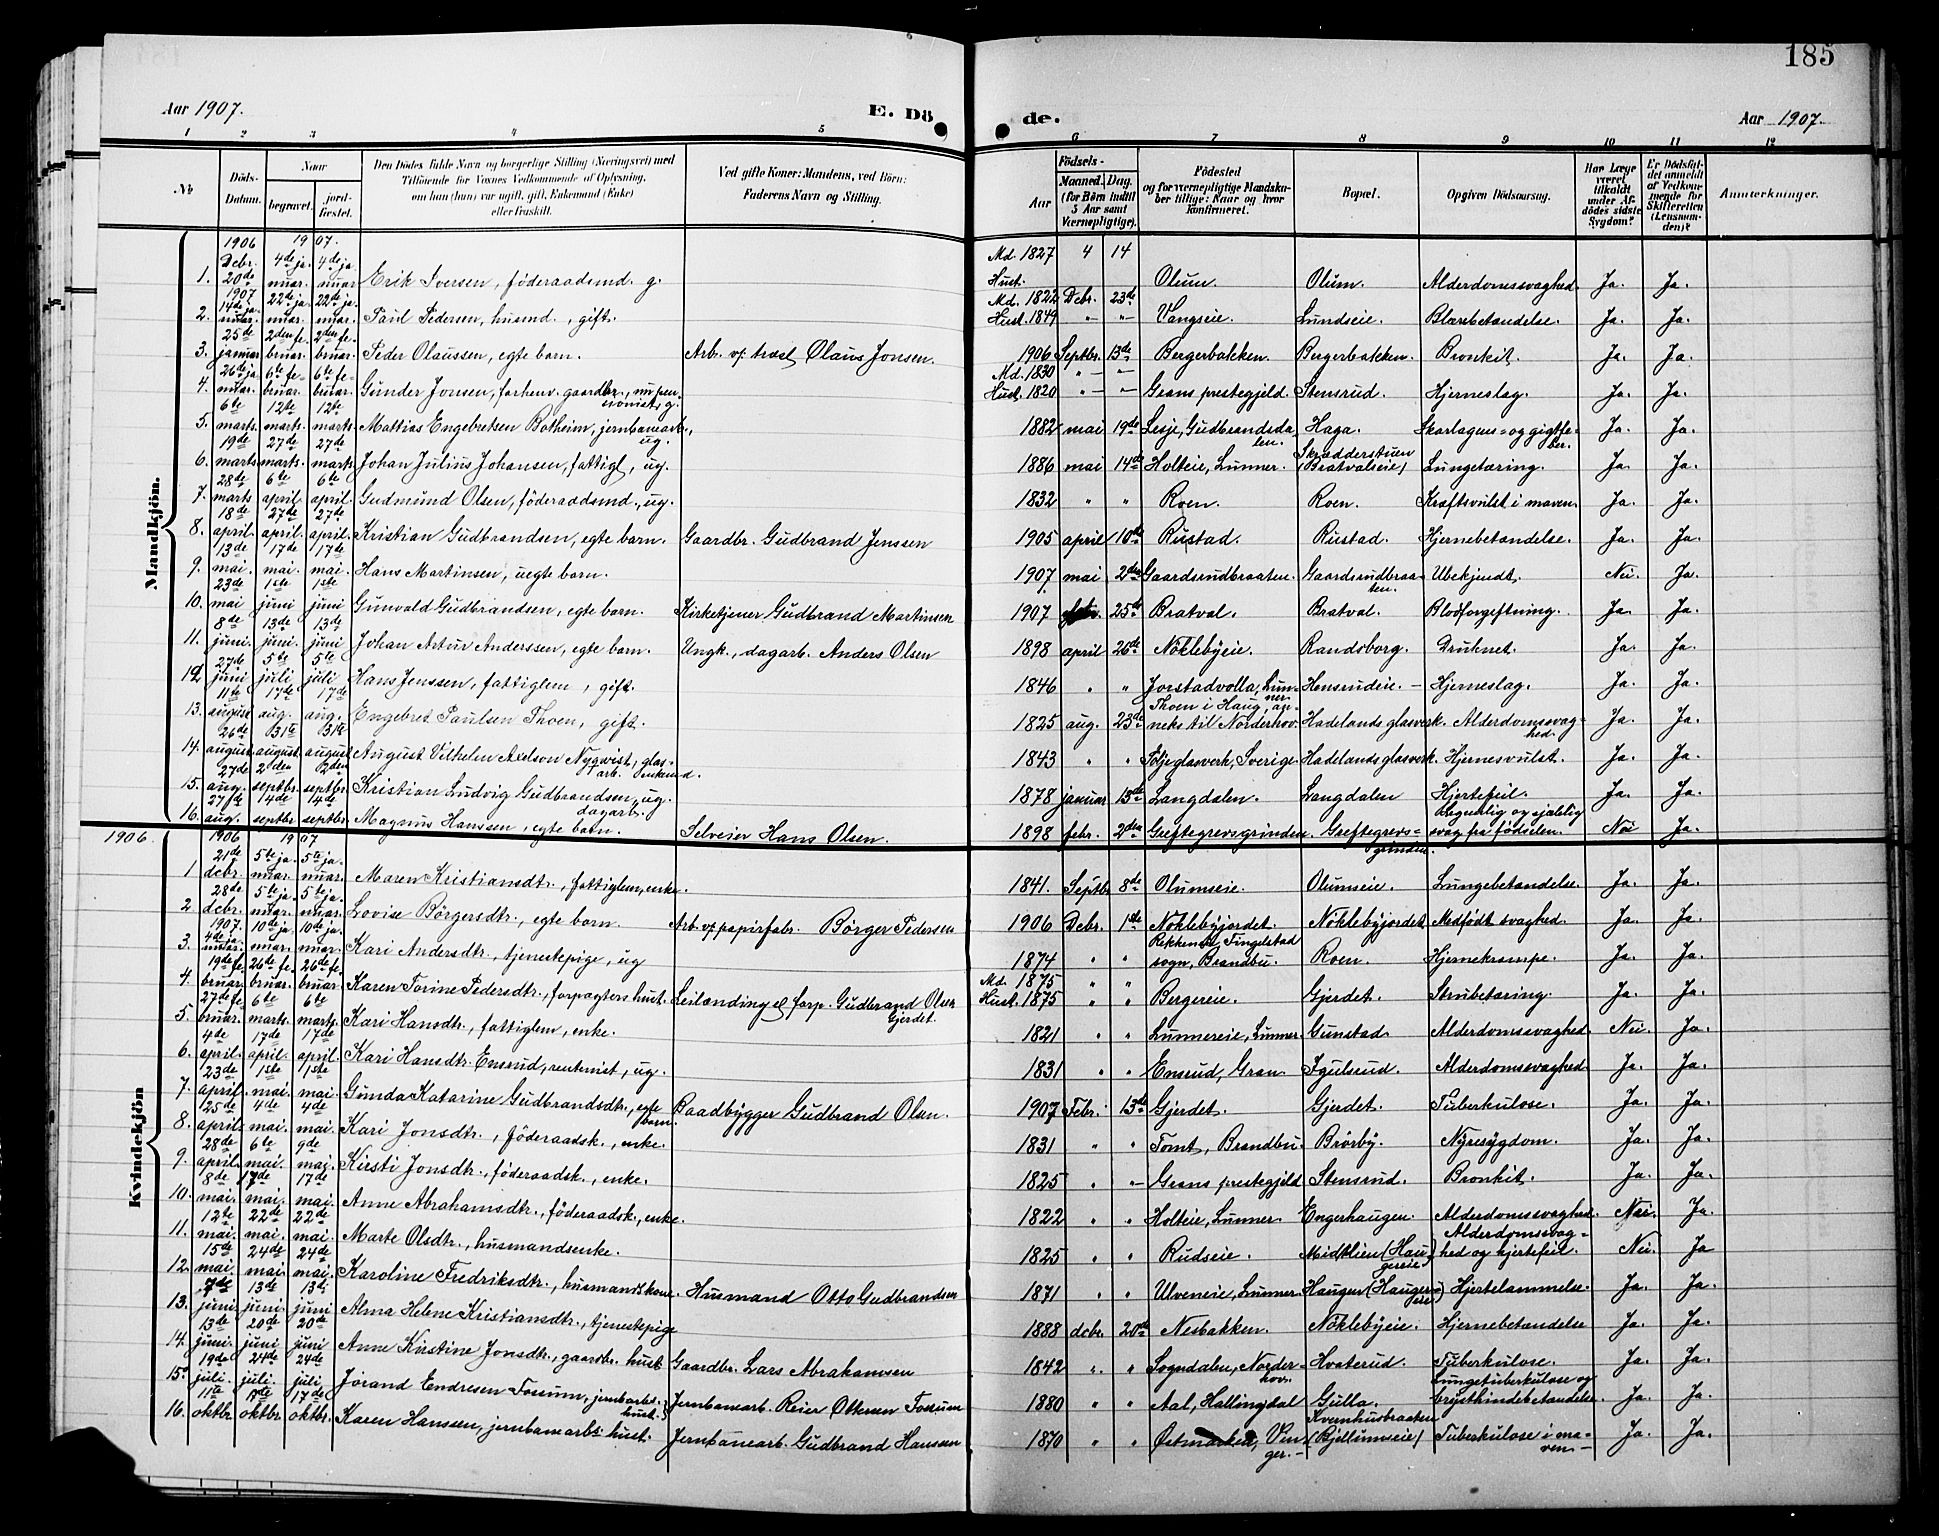 185
Aar 1907.
E. Dö
de.
Aar 1907.
1 2 3 4 5 6 7 8 9 10 11 12
No
Döds-Datum.
Naar
begravet.
jord-fæstet.
Den Dödes fulde Navn og borgerlige Stilling (Næringsvei) med
Tilföiende for Voxnes Vedkommende af Oplysning,
om han (hun) var ugift, gift, Enkemand (Enke)
eller fraskilt.
Ved gifte Koner: Mandens, ved Börn:
Faderens Navn og Stilling.
Födsels-
Aar
Maaned. Dag.
(for Börn indtil
5 Aar samt
Værnepligtige).
Födested
og for værnepligtige Mandsku-
ber tillige: Naar og hvor
konfirmeret.
Bopæl.
Opgiven Dödsaarsag.
Har Læge
været
tilkaldt
under Af-
dödes sidste
Sygdom?
Er Dödsfal-
det anmeldt
af Vedkom-
mende for
Skifteretten
(Lensman-
den)?
Anmærkninger.
Mandkjön.
1906 1907.
1. Debr. 20de 4de januar 4de januar Erik Iversen, föderaadsmd. g. Md. 1827 4 14 Hust. Olum. Olum. Alderdomssvaghed. Ja. Ja.
1907
2. 14de januar. 22de januar. 22de januar. Paul Pedersen, husmd., gift. Md. 1822 Debr. 23de Hust. 1849 " " Vangseie. Lundseie. Blærebetændelse. Ja. Ja.
3. 25de januar 2den februar. 2den februar. Peder Olaussen, egte barn. Arb. v/ træsl. Olaus Jonsen. 1906 Septbr. 13de Bergerbakken. Bergerbakken. Bronkit. Ja. Ja.
4. 26de januar. 6te februar. 6te februar. Gunder Jonsen, forhenv. gaardbr., nu pensionist, g. Md. 1830 " " Hust. 1820 " " Grans prestegjeld. Stensrud. Hjerneslag. Ja. Ja.
5. 6te marts. 12te marts. 12te marts. Mattias Engebretsen Botheim, jernbanearb., ug. 1882 mai 19de Lesje, Gudbrandsdalen. Haga. Skarlagens- og gigtfeber. Ja. Ja.
6. 19de marts 27de marts. 27de marts Johan Julius Johansen, fattigl., ug. 1886 mai 14de Holteie, Lunner. Skrædderstuen (Bratvalseie) Lungetæring. Ja. Ja.
7. 28de marts 6te april. 6te april. Gudmund Olsen, föderaadsmd., ug. 1832 " " Roen. Roen. Kræftsvulst i maven. Ja. Ja.
8. 18de april. 27de april. 27de april. Kristian Gudbrandsen, egte barn. Gaardbr. Gudbrand Jenssen 1905 april 10de Rustad. Rustad. Hjernebetændelse. Ja. Ja.
9. 13de mai. 17de mai. 17de mai Hans Martinsen, uegte barn. 1907. mai 2den Gaardsrudbraaten. Gaardsrudbraaten. Ubekjendt. Nei. Ja.
10. 23de mai 1ste juni 1ste juni Gunvald Gudbrandsen, egte barn. Kirketjener Gudbrand Martinsen 1907 25de Bratval. Bratval. Blodforgiftning. Ja. Ja.
11. 8de juni. 13de juni. 13de juni Johan Artur Anderssen, egte barn. Ungk., dagarb. Anders Olsen 1898 april 26de Nöklebyeie. Randsborg. Druknet. Ja. Ja.
12 27de juni 5te juli 5te juli Hans Jenssen, fattiglem, gift. 1846 " " Jorstadvolla, Lunner. Hensrudeie. – Hjerneslag. Ja. Ja.
13. 11te august 17de aug. 17de aug. Engebret Paulsen Thoen, gift. 1825 aug. 23de Thoen i Haug, anneks til Norderhov. Hadelands glasverk. Alderdomssvaghed. Ja. Ja.
14. 26de august. 31te august 31te august August Vilhelm Axelson Nyqvist, glasarb. enkemd. 1843 " " glasverk, Sverige. Hadelands glasverk. Hjernesvulst. Ja. Ja.
15. 27de aug. 2den septbr. 2den septbr. Kristian Ludvig Gudbrandsen, ug. dagarb. 1878 januar 15de Langdalen. Langdalen Hjertefeil. Ja. Ja.
16. 27de aug. 14de septbr. 14de septbr. Magnus Hanssen, egte barn. Selveier Hans Olsen. 1898 febr. 2den Greftegrevsgrinden. Greftegrevsgrinden. Legemlig og sjælelig svag fra fødselen. Nei Ja.
Kvindekjön
1906. 1906 1907
1 21de debr. 5te januar. 5te januar. Maren Kristiansdtr., fattiglem, enke. 1841. Septbr 8de Olumseie. Olumseie. Lungebetændelse Ja. Ja.
2 28de debr. 5te januar. 5te januar. Lovise Börgersdtr., egte barn. Arb. v/ papirfabr. Börger Pedersen 1906 Debr. 1ste Nöklebyjordet. Nöklebyjordet. Medfödt svaghed. Ja. Ja.
1907.
3. 4de januar. 10de januar. 10de januar. Kari Andersdtr., tjenestepige, ug 1874 " " Tingelstad sogn, Brandbu. Roen. Hjernekrampe. Ja. Ja.
4. 19de februar. 26de februar. 26de februar Karen Torine Pedersdtr., forpagters hust. Leilænding el. forp. Gudbrand Olsen Gjerdet. Md. 1875 " " Hust. 1875 " " Bergereie. Gjerdet. Strubetæring. Ja. Ja.
5. 27de februar. 6te marts. 6te marts. Kari Hansdtr., fattiglem, enke. 1821 " " Lunnereie, Lunner Gunstad. Alderdomssvaghed Nei. Ja.
6. 4de april. 17de april. 17de april. Kari Hansdtr. Ensrud, rentenist, ug. 1831 " " Ensrud, Gran Igulsrud. Alderdomssvaghed Ja. Ja.
7. 23de april. 1ste mai. 1ste mai. Gunda Katarine Gudbrandsdtr., egte barn. Baadbygger Gudbrand Olsen. 1907 Febr. 13de Gjerdet. Gjerdet. Tuberkulose. Ja. Ja.
8. 25de april. 4de mai. 4de mai. Kari Jonsdtr., föderaadsk., enke. 1831 " " Tomt, Brandbu Brörby. Nyresygdom. Ja. Ja.
9. 28de april. 6te mai. 9de mai. Kirsti Jonsdtr., föderaadsk., enke. 1825 " " Grans prestegjeld Stensrud. Bronkit. Ja. Ja.
10. 8de mai. 17de mai. 17de mai. Anne Abrahamsdtr., föderaadsk., enke. 1822 " " Holteie, Lunner Engerhaugen. Alderdomssvaghed. Nei. Ja.
11. 12te mai. 22de mai. 22de mai. Marte Olsdtr., husmandsenke. 1825 " " Rudseie. Midtlien (Haugereie) Alderdomssvaghed og hjertefeil. Nei. Ja
12. 15de mai 24de mai. 24de mai. Karoline Fredriksdtr., husmandskone. Husmand Otto Gudbrandsen 1871 " " Ulveneie, Lunner. Haugen (Haugereie) Hjertelammelse. Ja. Ja.
13. 7de juni 13de juni. 13de juni Alma Helene Kristiansdtr., tjenestepige 1888 debr. 20de Nesbakken. Nöklebyeie. Hjernebetændelse Ja. Ja.
14. 13de juni. 20de juni 20de juni Anne Kirstine Jonsdtr., gaardbr. hust. Gaardbr. Lars Abrahamsen 1842 " " Sogndalen, Norderhov. Hvaterud. Tuberkulose. Ja. Ja.
15. 19de juli. 24de juli. 24de juli. Jörand Endresen Fossum, jernbarbs. hust. Jernbanearb. Reier Ottesen Fossum 1880 " " Aal, Hallingdal Gulla. Lungetuberkulose og brysthindebetændelse. Ja. Ja.
16. 11te oktbr. 17de oktbr. 17de oktbr. Karen Hanssen, jernbanearbs. hust. Jernbanearb. Gudbrand Hanssen 1870 " " Østmarken, Vinger. – Kvernhusbraaten (Bjellumseie) Tuberkulose i maven. – Ja. Ja.